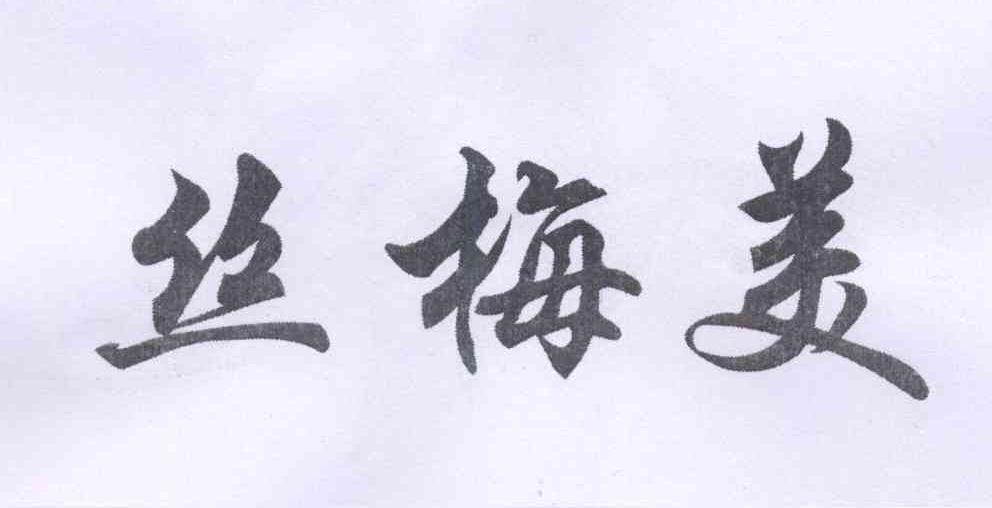 丝梅美